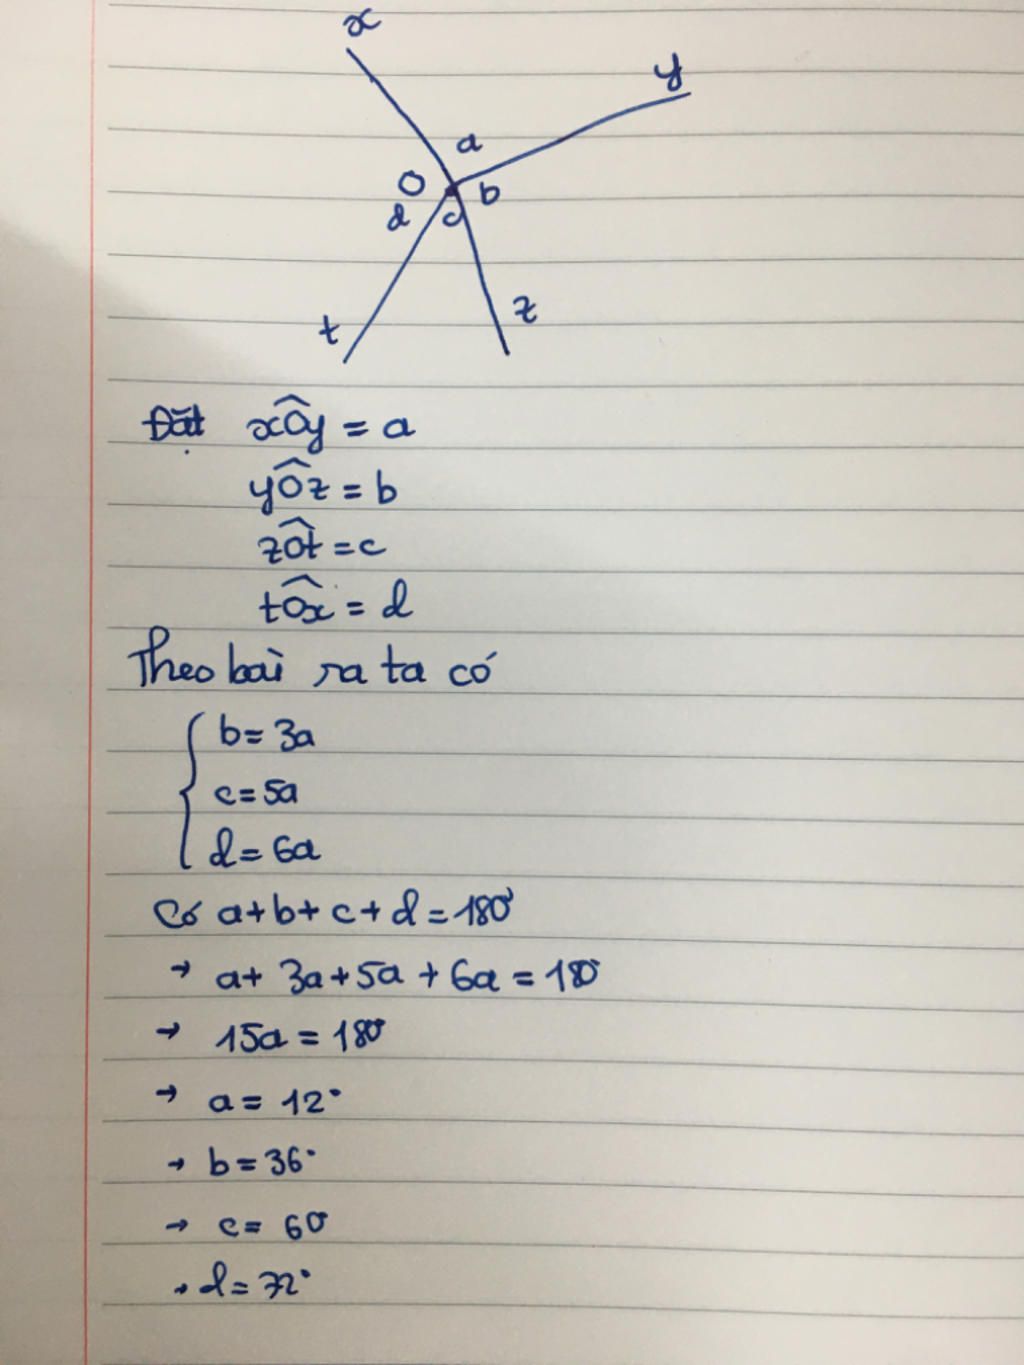 x
y
a
O
b
d
c
z
t
Đặt xÔy = a
yÔz = b
zÔt = c
tÔx = d
Theo bài ra ta có
b = 3a
c = 5a
d = 6a
Có a + b + c + d = 180°
→ a + 3a + 5a + 6a = 180°
→ 15a = 180°
→ a = 12°
→ b = 36°
→ c = 60°
→ d = 72°